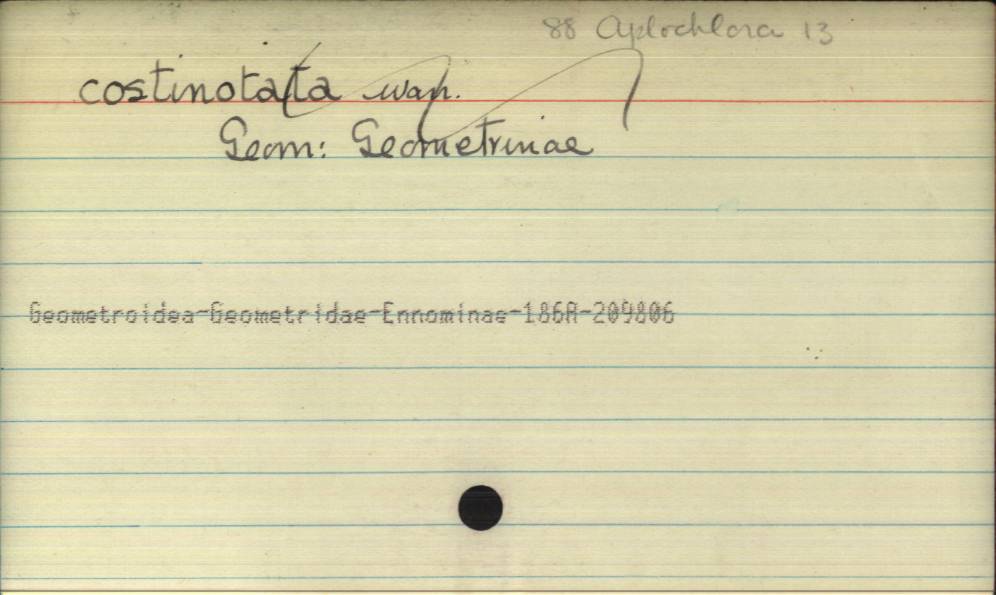 88 Aplochlora 13
costinotata Warr.
Geom: Geometrinae
Geometroidea-Geometridae-Ennominae-186A-209806